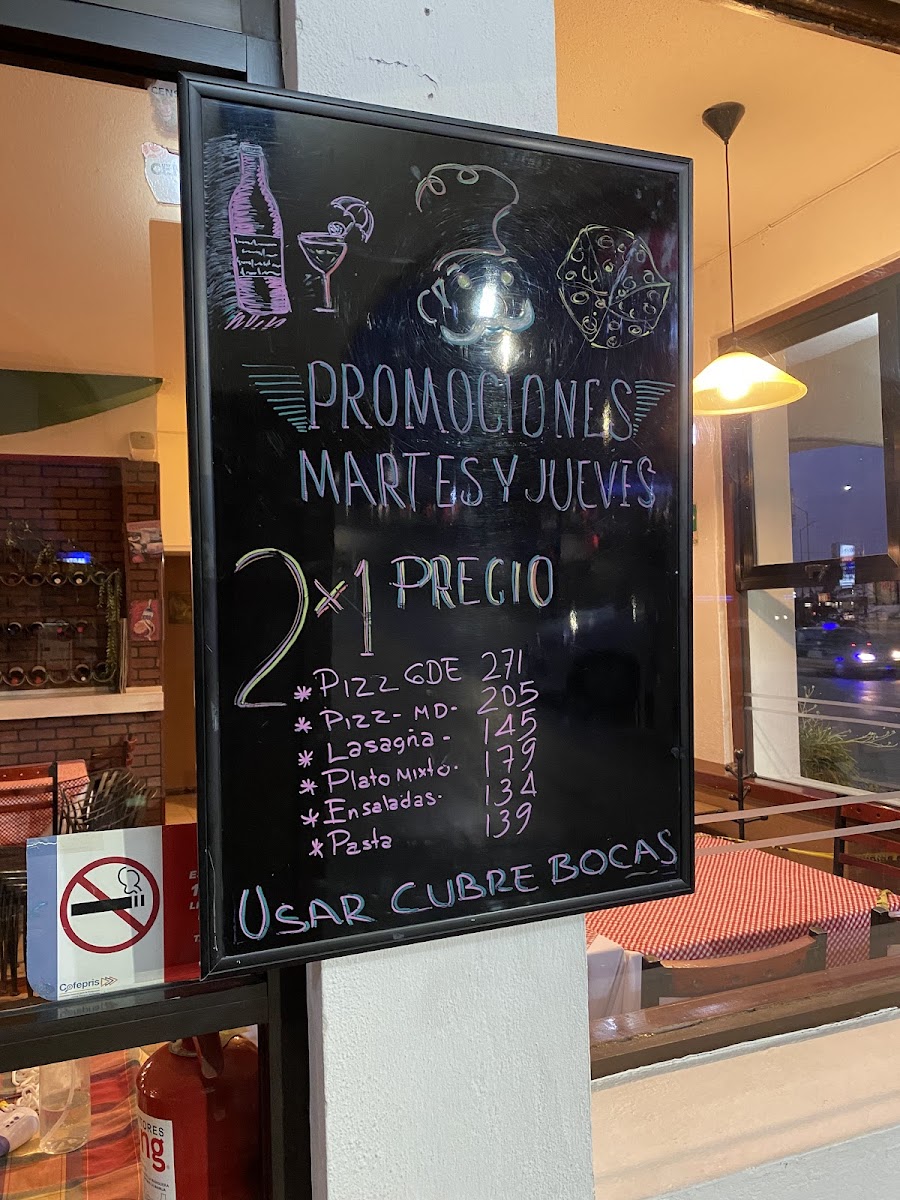 PROMOCIONES
MARTES Y JUEVES
2x1 PRECIO
* PIZZ GDE 271
* PIZZ- MD- 205
* Lasagña - 145
* Plato Mixto. 179
* Ensaladas. 134
* Pasta 139
USAR CUBRE BOCAS
Cofepris